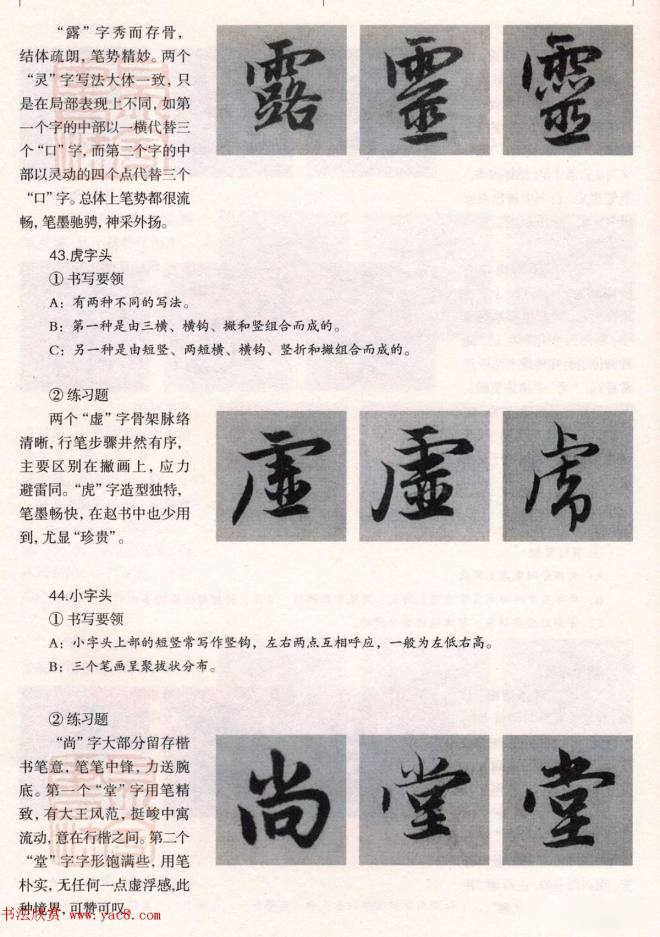 “露”字秀而存骨，
结体疏朗，笔势精妙。两个
“灵”字写法大体一致，只
是在局部表现上不同，如第
一个字的中部以一横代替三
个“口”字，而第二个字的中
部以灵动的四个点代替三个
“口”字。总体上笔势都很流
畅，笔墨驰骋，神采外扬。
露 靈 靈
43.虎字头
① 书写要领
A：有两种不同的写法。
B：第一种是由三横、横钩、撇和竖组合而成的。
C：另一种是由短竖、两短横、横钩、竖折和撇组合而成的。
② 练习题
两个“虚”字骨架脉络
清晰，行笔步骤井然有序，
主要区别在撇画上，应力
避雷同。“虎”字造型独特，
笔墨畅快，在赵书中也少用
到，尤显“珍贵”。
虚 虚 虎
44.小字头
① 书写要领
A：小字头上部的短竖常写作竖钩，左右两点互相呼应，一般为左低右高。
B：三个笔画呈聚拔状分布。
② 练习题
“尚”字大部分留存楷
书笔意，笔笔中锋，力送腕
底。第一个“堂”字用笔精
致，有大王风范，挺峻中寓
流动，意在行楷之间。第二个
“堂”字字形饱满些，用笔
朴实，无任何一点虚浮感，此
种境界，可赞可叹。
尚 堂 堂
书法欣赏 www.yac8.com